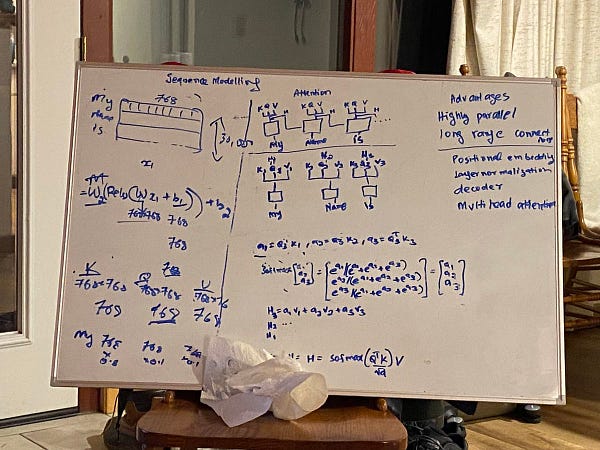 Sequence Modelling
768
My
Name
is
x₁
= W₂(Relu(W x₁ + b₁)) + b₂
768×768
768
768
K
Q
768
V
768×768
768×768
768
768
My 768
768
×
0.8
×0.1
×0.1
Attention
K Q V
H
K Q V
H
K Q V
H
...
My
Name
is
H₁
H₂
H₃
K₁ Q₁ V₁
K₃ Q₃ V₃
My
is
a₁ = Q₃ᵀK₁, a₂ = Q₃ᵀK₂, a₃ = Q₃ᵀK₃
Softmax [a₁ a₂ a₃] = [e^a₁/(e^a₁+e^a₂+e^a₃) e^a₂/(e^a₁+e^a₂+e^a₃) e^a₃/(e^a₁+e^a₂+e^a₃)] = [a₁ a₂ a₃]
H₃ = a₁V₁ + a₂V₂ + a₃V₃
H₂ ...
H₁
H = Sofmax(QᵀK/√d)V
Advantages
Highly parallel
long range connect
Positional embedding
layernormalization
decoder
Multihead attention